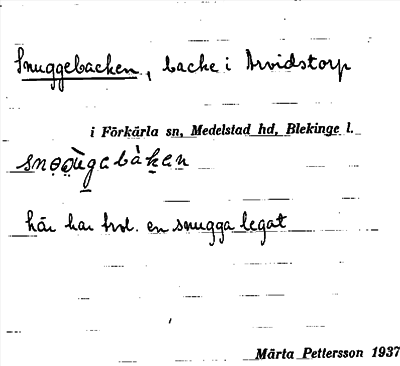 Snuggebacken, backe i Arvidstorp
i Förkärla sn, Medelstad hd, Blekinge l.
här har trol. en snugga legat
Märta Pettersson 1937